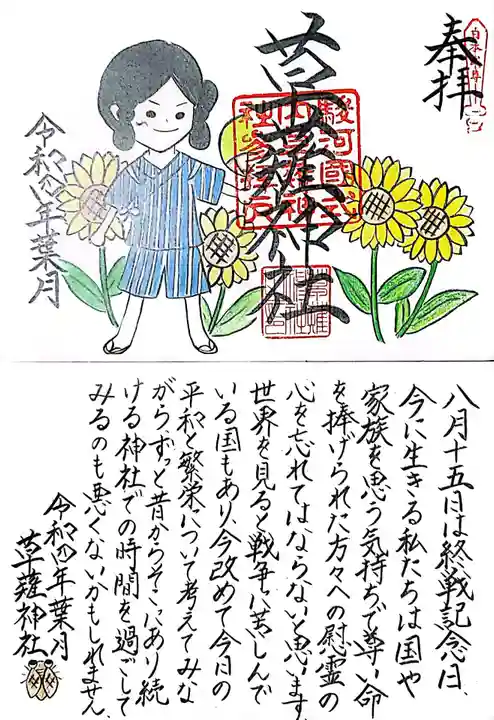 奉拝
草薙神社
駿河國式
令和四年葉月
八月十五日は終戦記念日、
今に生きる私たちは国や
家族を思う気持ちで尊い命
を捧げられた方々への慰霊の
心を忘れてはならないと思います。
世界を見ると戦争に苦しんで
いる国もあり、今改めて今日の
平和と繁栄について考えてみな
がらずっと昔からそこにあり続
ける神社での時間を過ごして
みるのも悪くないかもしれません。
令和四年葉月
草薙神社